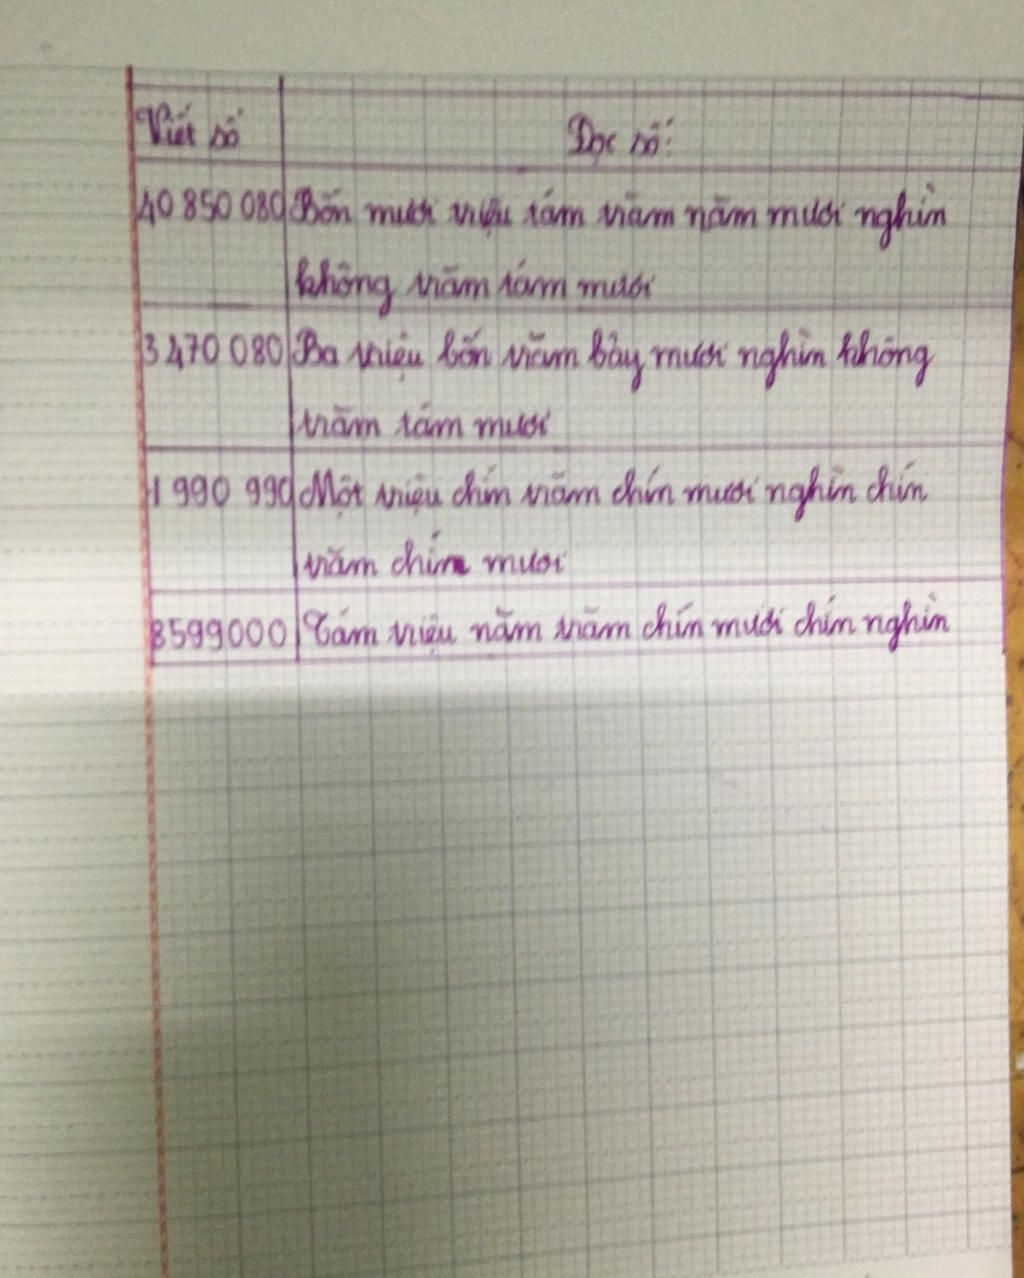 Viết số Đọc số:
40 850 080 Bốn mươi triệu tám trăm năm mươi nghìn
không trăm tám mươi
3 470 080 Ba triệu bốn trăm bảy mươi nghìn không
trăm tám mươi
1 990 990 Một triệu chín trăm chín mươi nghìn chín
trăm chín mươi
8599000 Tám triệu năm trăm chín mươi chín nghìn